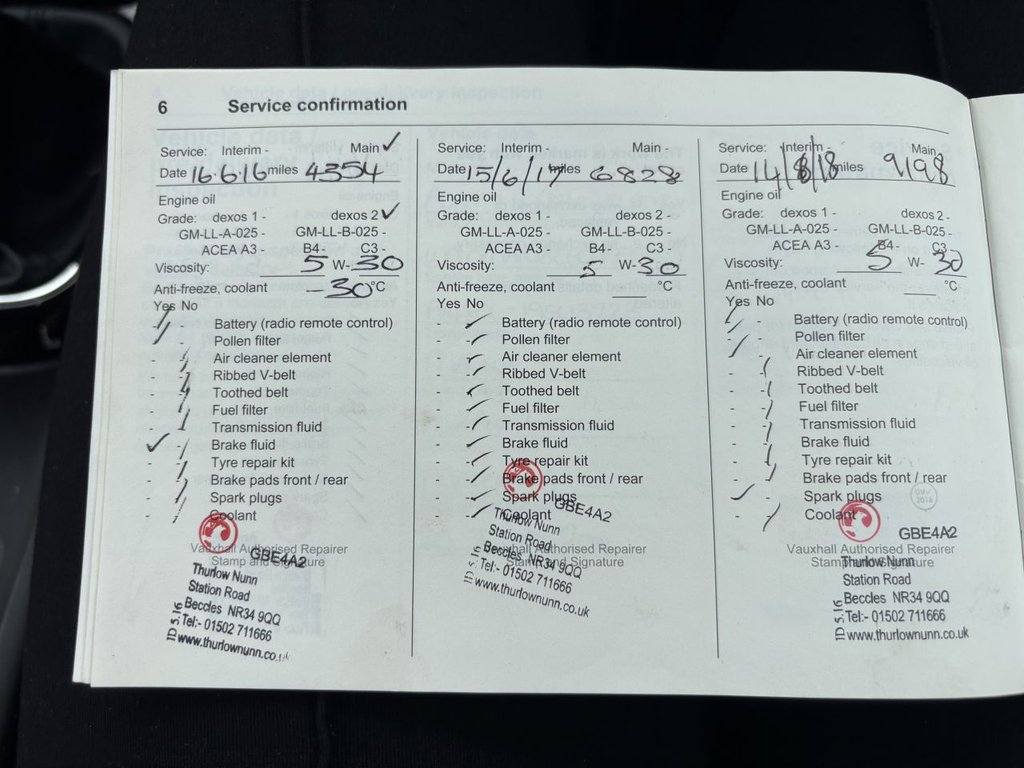 6 Service confirmation
Service: Interim - Main ✓
Date 16.6.16 miles 4354
Engine oil
Grade: dexos 1 - dexos 2 ✓
GM-LL-A-025 - GM-LL-B-025 -
ACEA A3 - B4 - C3 -
Viscosity: 5 W- 30
Anti-freeze, coolant -30 °C
Yes No
Battery (radio remote control)
Pollen filter
Air cleaner element
Ribbed V-belt
Toothed belt
Fuel filter
Transmission fluid
✓ - Brake fluid
Tyre repair kit
Brake pads front / rear
Spark plugs
Coolant
GBE4A2
Vauxhall Authorised Repairer
Stamp and Signature
Thurlow Nunn
Station Road
Beccles NR34 9QQ
Tel:- 01502 711666
www.thurlownunn.co.uk
ID 5.16
Service: Interim - Main -
Date 15/6/17 miles 6828
Engine oil
Grade: dexos 1 - dexos 2 -
GM-LL-A-025 - GM-LL-B-025 -
ACEA A3 - B4 - C3 -
Viscosity: 5 W- 30
Anti-freeze, coolant °C
Yes No
Battery (radio remote control)
Pollen filter
Air cleaner element
Ribbed V-belt
Toothed belt
Fuel filter
Transmission fluid
Brake fluid
Tyre repair kit
Brake pads front / rear
Spark plugs
Coolant
GBE4A2
Thurlow Nunn
Station Road
Vauxhall Authorised Repairer
Stamp and Signature
Beccles NR34 9QQ
Tel:- 01502 711666
www.thurlownunn.co.uk
Service: Interim - Main -
Date 14/8/18 miles 9198
Engine oil
Grade: dexos 1 - dexos 2 -
GM-LL-A-025 - GM-LL-B-025 -
ACEA A3 - B4 - C3 -
Viscosity: 5 W- 30
Anti-freeze, coolant °C
Yes No
Battery (radio remote control)
Pollen filter
Air cleaner element
Ribbed V-belt
Toothed belt
Fuel filter
Transmission fluid
Brake fluid
Tyre repair kit
Brake pads front / rear
✓ - Spark plugs
Coolant
GBE4A2
Vauxhall Authorised Repairer
Stamp and Signature
Thurlow Nunn
Station Road
Beccles NR34 9QQ
Tel:- 01502 711666
www.thurlownunn.co.uk
ID 5.16